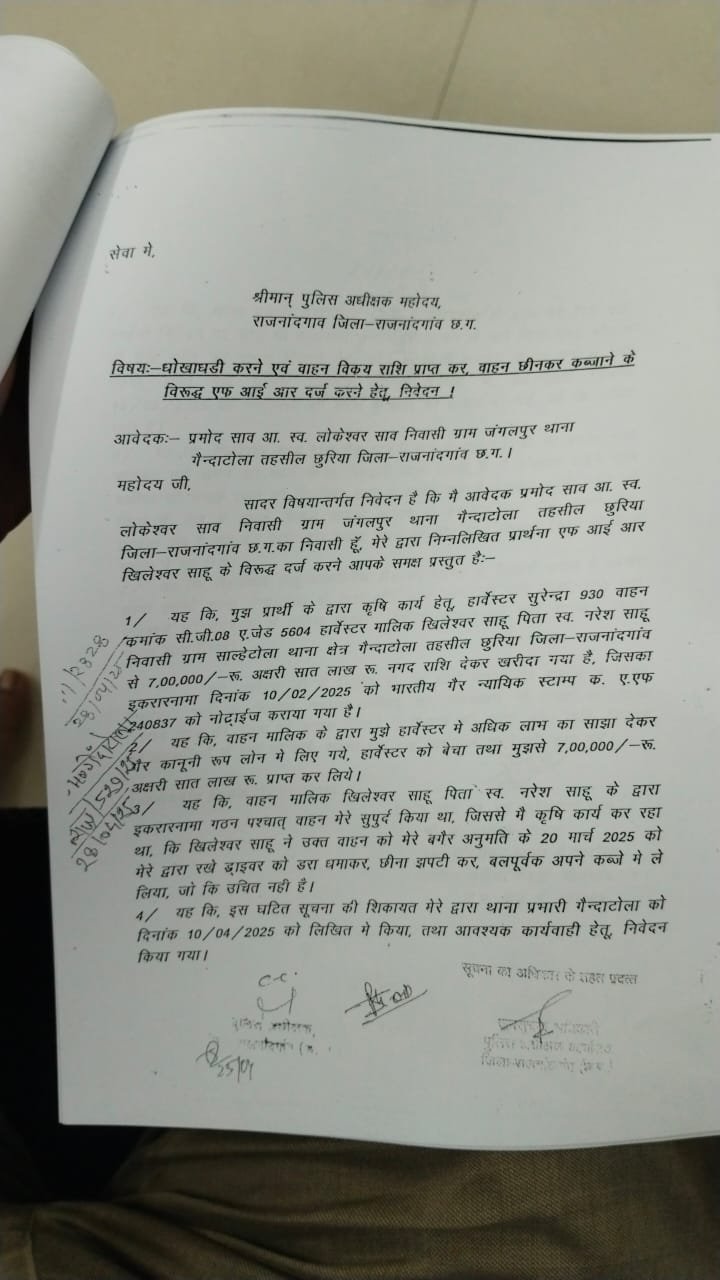 सेवा मे,
श्रीमान् पुलिस अधीक्षक महोदय,
राजनांदगाव जिला–राजनांदगांव छ.ग.
विषयः–धोखाघडी करने एवं वाहन विक्रय राशि प्राप्त कर, वाहन छीनकर कब्जाने के
विरूद्ध एफ आई आर दर्ज करने हेतू, निवेदन ।
आवेदकः– प्रमोद साव आ. स्व. लोकेश्वर साव निवासी ग्राम जंगलपुर थाना
गैन्दाटोला तहसील छुरिया जिला–राजनांदगांव छ.ग.।
महोदय जी,
सादर विषयान्तर्गत निवेदन है कि मै आवेदक प्रमोद साव आ. स्व.
लोकेश्वर साव निवासी ग्राम जंगलपुर थाना गैन्दाटोला तहसील छुरिया
जिला–राजनांदगांव छ.ग.का निवासी हूॅ, मेरे द्वारा निम्नलिखित प्रार्थना एफ आई आर
खिलेश्वर साहू के विरूद्ध दर्ज करने आपके समक्ष प्रस्तुत हैः–
1/ यह कि, मुझ प्रार्थी के द्वारा कृषि कार्य हेतू, हार्वेस्टर सुरेन्द्रा 930 वाहन
कमांक सी.जी.08 ए.जेड 5604 हार्वेस्टर मालिक खिलेश्वर साहू पिता स्व. नरेश साहू
निवासी ग्राम साल्हेटोला थाना क्षेत्र गैन्दाटोला तहसील छुरिया जिला–राजनांदगांव
से 7,00,000/–रू. अक्षरी सात लाख रू. नगद राशि देकर खरीदा गया है, जिसका
इकरारनामा दिनांक 10/02/2025 को भारतीय गैर न्यायिक स्टाम्प क. ए.एफ
240837 को नोट्राईज कराया गया है।
2/ यह कि, वाहन मालिक के द्वारा मुझे हार्वेस्टर मे अधिक लाभ का साझा देकर
गैर कानूनी रूप लोन में लिए गये, हार्वेस्टर को बेचा तथा मुझसे 7,00,000/–रू.
अक्षरी सात लाख रू. प्राप्त कर लिये।
3/ यह कि, वाहन मालिक खिलेश्वर साहू पिता स्व. नरेश साहू के द्वारा
इकरारनामा गठन पश्चात् वाहन मेरे सुपुर्द किया था, जिससे मै कृषि कार्य कर रहा
था, कि खिलेश्वर साहू ने उक्त वाहन को मेरे बगैर अनुमति के 20 मार्च 2025 को
मेरे द्वारा रखे ड्राइवर को डरा धमाकर, छीना झपटी कर, बलपूर्वक अपने कब्जे मे ले
लिया, जो कि उचित नही है।
4/ यह कि, इस घटित सूचना की शिकायत मेरे द्वारा थाना प्रभारी गैन्दाटोला को
दिनांक 10/04/2025 को लिखित मे किया, तथा आवश्यक कार्यवाही हेतू, निवेदन
किया गया।
529/25
28/04/25
28/04/25
सूचना का अधिकार के तहत प्रदत्त
C.C.
पुलिस अधीक्षक,